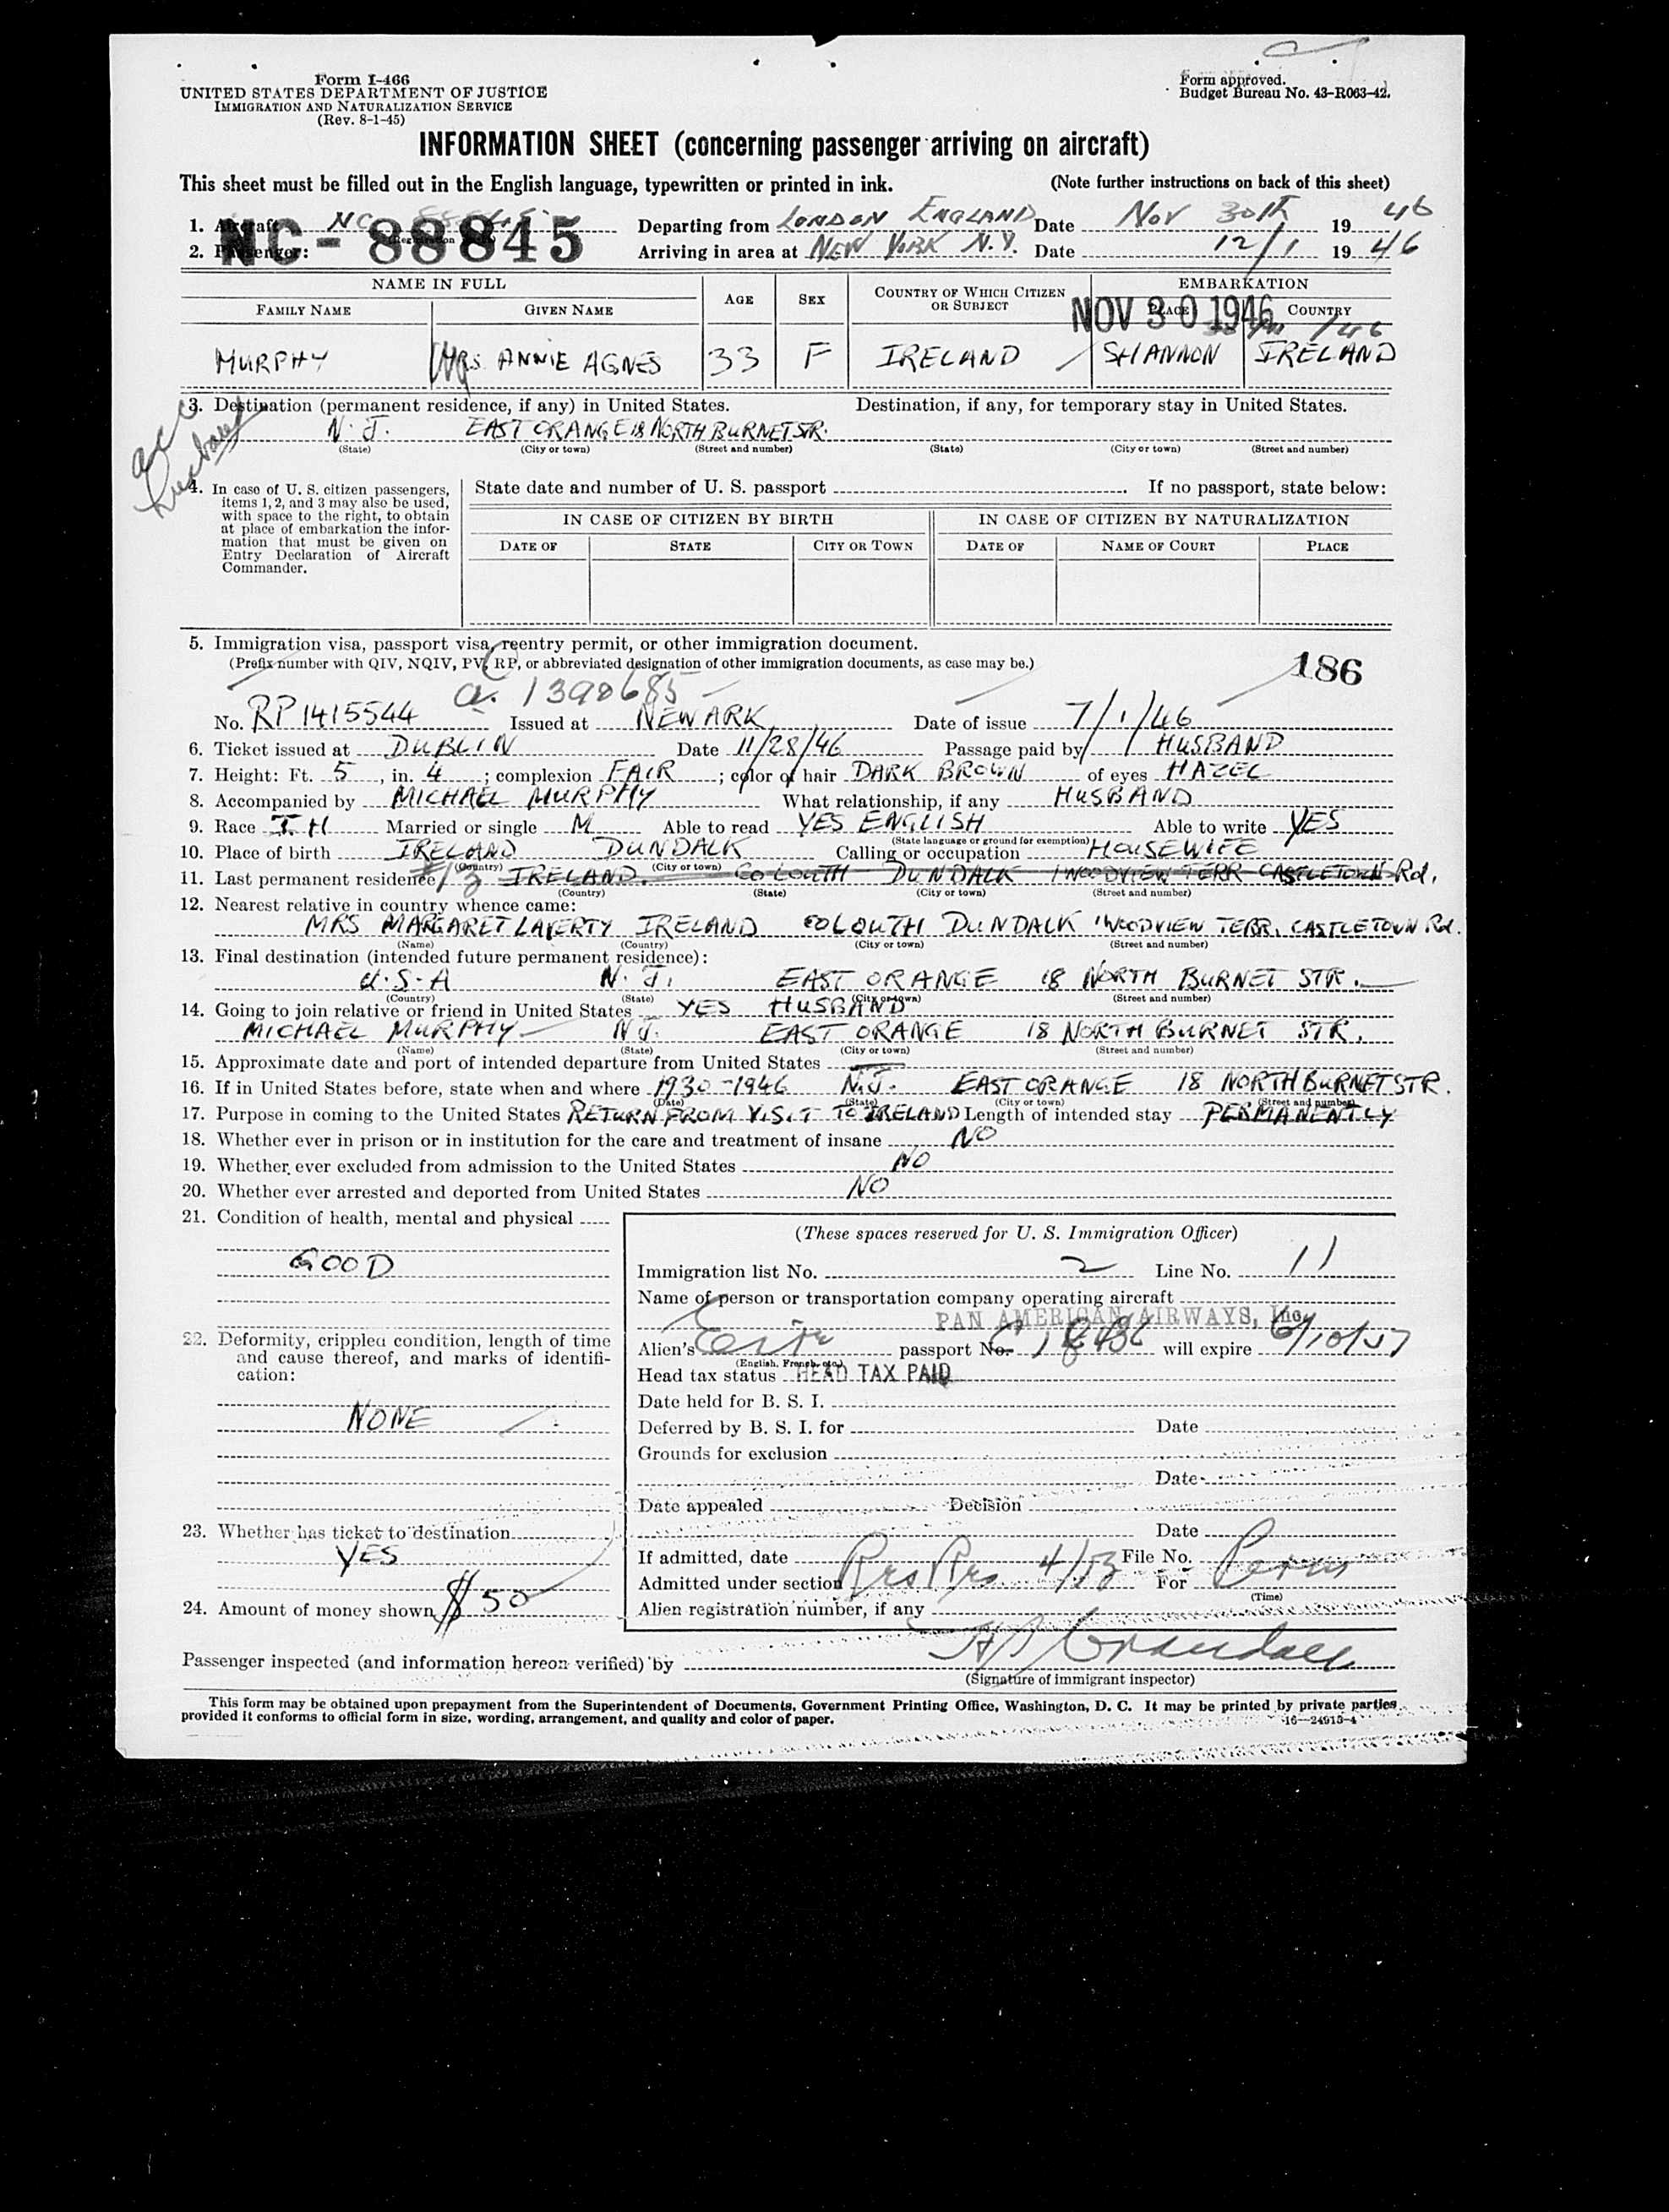 Form I-466
UNITED STATES DEPARTMENT OF JUSTICE
IMMIGRATION AND NATURALIZATION SERVICE
(Rev. 8-1-45)
Form approved.
Budget Bureau No. 43-R063-42.
INFORMATION SHEET (concerning passenger arriving on aircraft)
This sheet must be filled out in the English language, typewritten or printed in ink. (Note further instructions on back of this sheet)
1. Aircraft NC Departing from LONDON ENGLAND Date NOV 30th 1946
NC-88845
2. Passenger: Arriving in area at NEW YORK N.Y. Date 12/1 1946
NAME IN FULL AGE SEX COUNTRY OF WHICH CITIZEN OR SUBJECT EMBARKATION
FAMILY NAME GIVEN NAME PLACE COUNTRY
NOV 30 1946
MURPHY MRS ANNIE AGNES 33 F IRELAND SHANNON IRELAND
acc husband
3. Destination (permanent residence, if any) in United States. Destination, if any, for temporary stay in United States.
N. J. EAST ORANGE 18 NORTH BURNET STR.
(State) (City or town) (Street and number) (State) (City or town) (Street and number)
4. In case of U. S. citizen passengers, items 1, 2, and 3 may also be used, with space to the right, to obtain at place of embarkation the information that must be given on Entry Declaration of Aircraft Commander.
State date and number of U. S. passport . If no passport, state below:
IN CASE OF CITIZEN BY BIRTH IN CASE OF CITIZEN BY NATURALIZATION
DATE OF STATE CITY OR TOWN DATE OF NAME OF COURT PLACE
5. Immigration visa, passport visa, reentry permit, or other immigration document.
(Prefix number with QIV, NQIV, PV, RP, or abbreviated designation of other immigration documents, as case may be.)
186
a. 1390685
No. RP 1415544 Issued at NEWARK Date of issue 7/1/46
6. Ticket issued at DUBLIN Date 11/28/46 Passage paid by HUSBAND
7. Height: Ft. 5, in. 4; complexion FAIR; color of hair DARK BROWN of eyes HAZEL
8. Accompanied by MICHAEL MURPHY What relationship, if any HUSBAND
9. Race IH Married or single M Able to read YES ENGLISH Able to write YES
(State language or ground for exemption)
10. Place of birth IRELAND DUNDALK Calling or occupation HOUSEWIFE
(Country) (City or town)
11. Last permanent residence IRELAND. CO LOUTH DUNDALK 1 WOODVIEW TERR CASTLETOWN Rd.
(Country) (State) (City or town) (Street and number)
12. Nearest relative in country whence came:
MRS MARGARET LAVERTY IRELAND CO LOUTH DUNDALK 1 WOODVIEW TERR. CASTLETOWN Rd.
(Name) (Country) (City or town) (Street and number)
13. Final destination (intended future permanent residence):
U.S.A N. J. EAST ORANGE 18 NORTH BURNET STR.
(Country) (State) (City or town) (Street and number)
14. Going to join relative or friend in United States YES HUSBAND
MICHAEL MURPHY N.J. EAST ORANGE 18 NORTH BURNET STR.
(Name) (State) (City or town) (Street and number)
15. Approximate date and port of intended departure from United States
16. If in United States before, state when and where 1930-1946 N.J. EAST ORANGE 18 NORTH BURNET STR.
(Date) (State) (City or town) (Street and number)
17. Purpose in coming to the United States RETURN FROM VISIT TO IRELAND Length of intended stay PERMANENTLY
18. Whether ever in prison or in institution for the care and treatment of insane NO
19. Whether ever excluded from admission to the United States NO
20. Whether ever arrested and deported from United States NO
21. Condition of health, mental and physical
GOOD
22. Deformity, crippled condition, length of time and cause thereof, and marks of identification:
NONE
23. Whether has ticket to destination
YES
24. Amount of money shown $50
(These spaces reserved for U. S. Immigration Officer)
Immigration list No. 2 Line No. 11
Name of person or transportation company operating aircraft
PAN AMERICAN AIRWAYS, Inc.
Alien's passport No. will expire
(English, French, etc.)
Head tax status HEAD TAX PAID
Date held for B. S. I.
Deferred by B. S. I. for Date
Grounds for exclusion
Date
Date appealed Decision
Date
If admitted, date File No.
Admitted under section 4/13 For Perm
(Time)
Alien registration number, if any
Passenger inspected (and information hereon verified) by
(Signature of immigrant inspector)
This form may be obtained upon prepayment from the Superintendent of Documents, Government Printing Office, Washington, D. C. It may be printed by private parties
provided it conforms to official form in size, wording, arrangement, and quality and color of paper. 16—24913-4